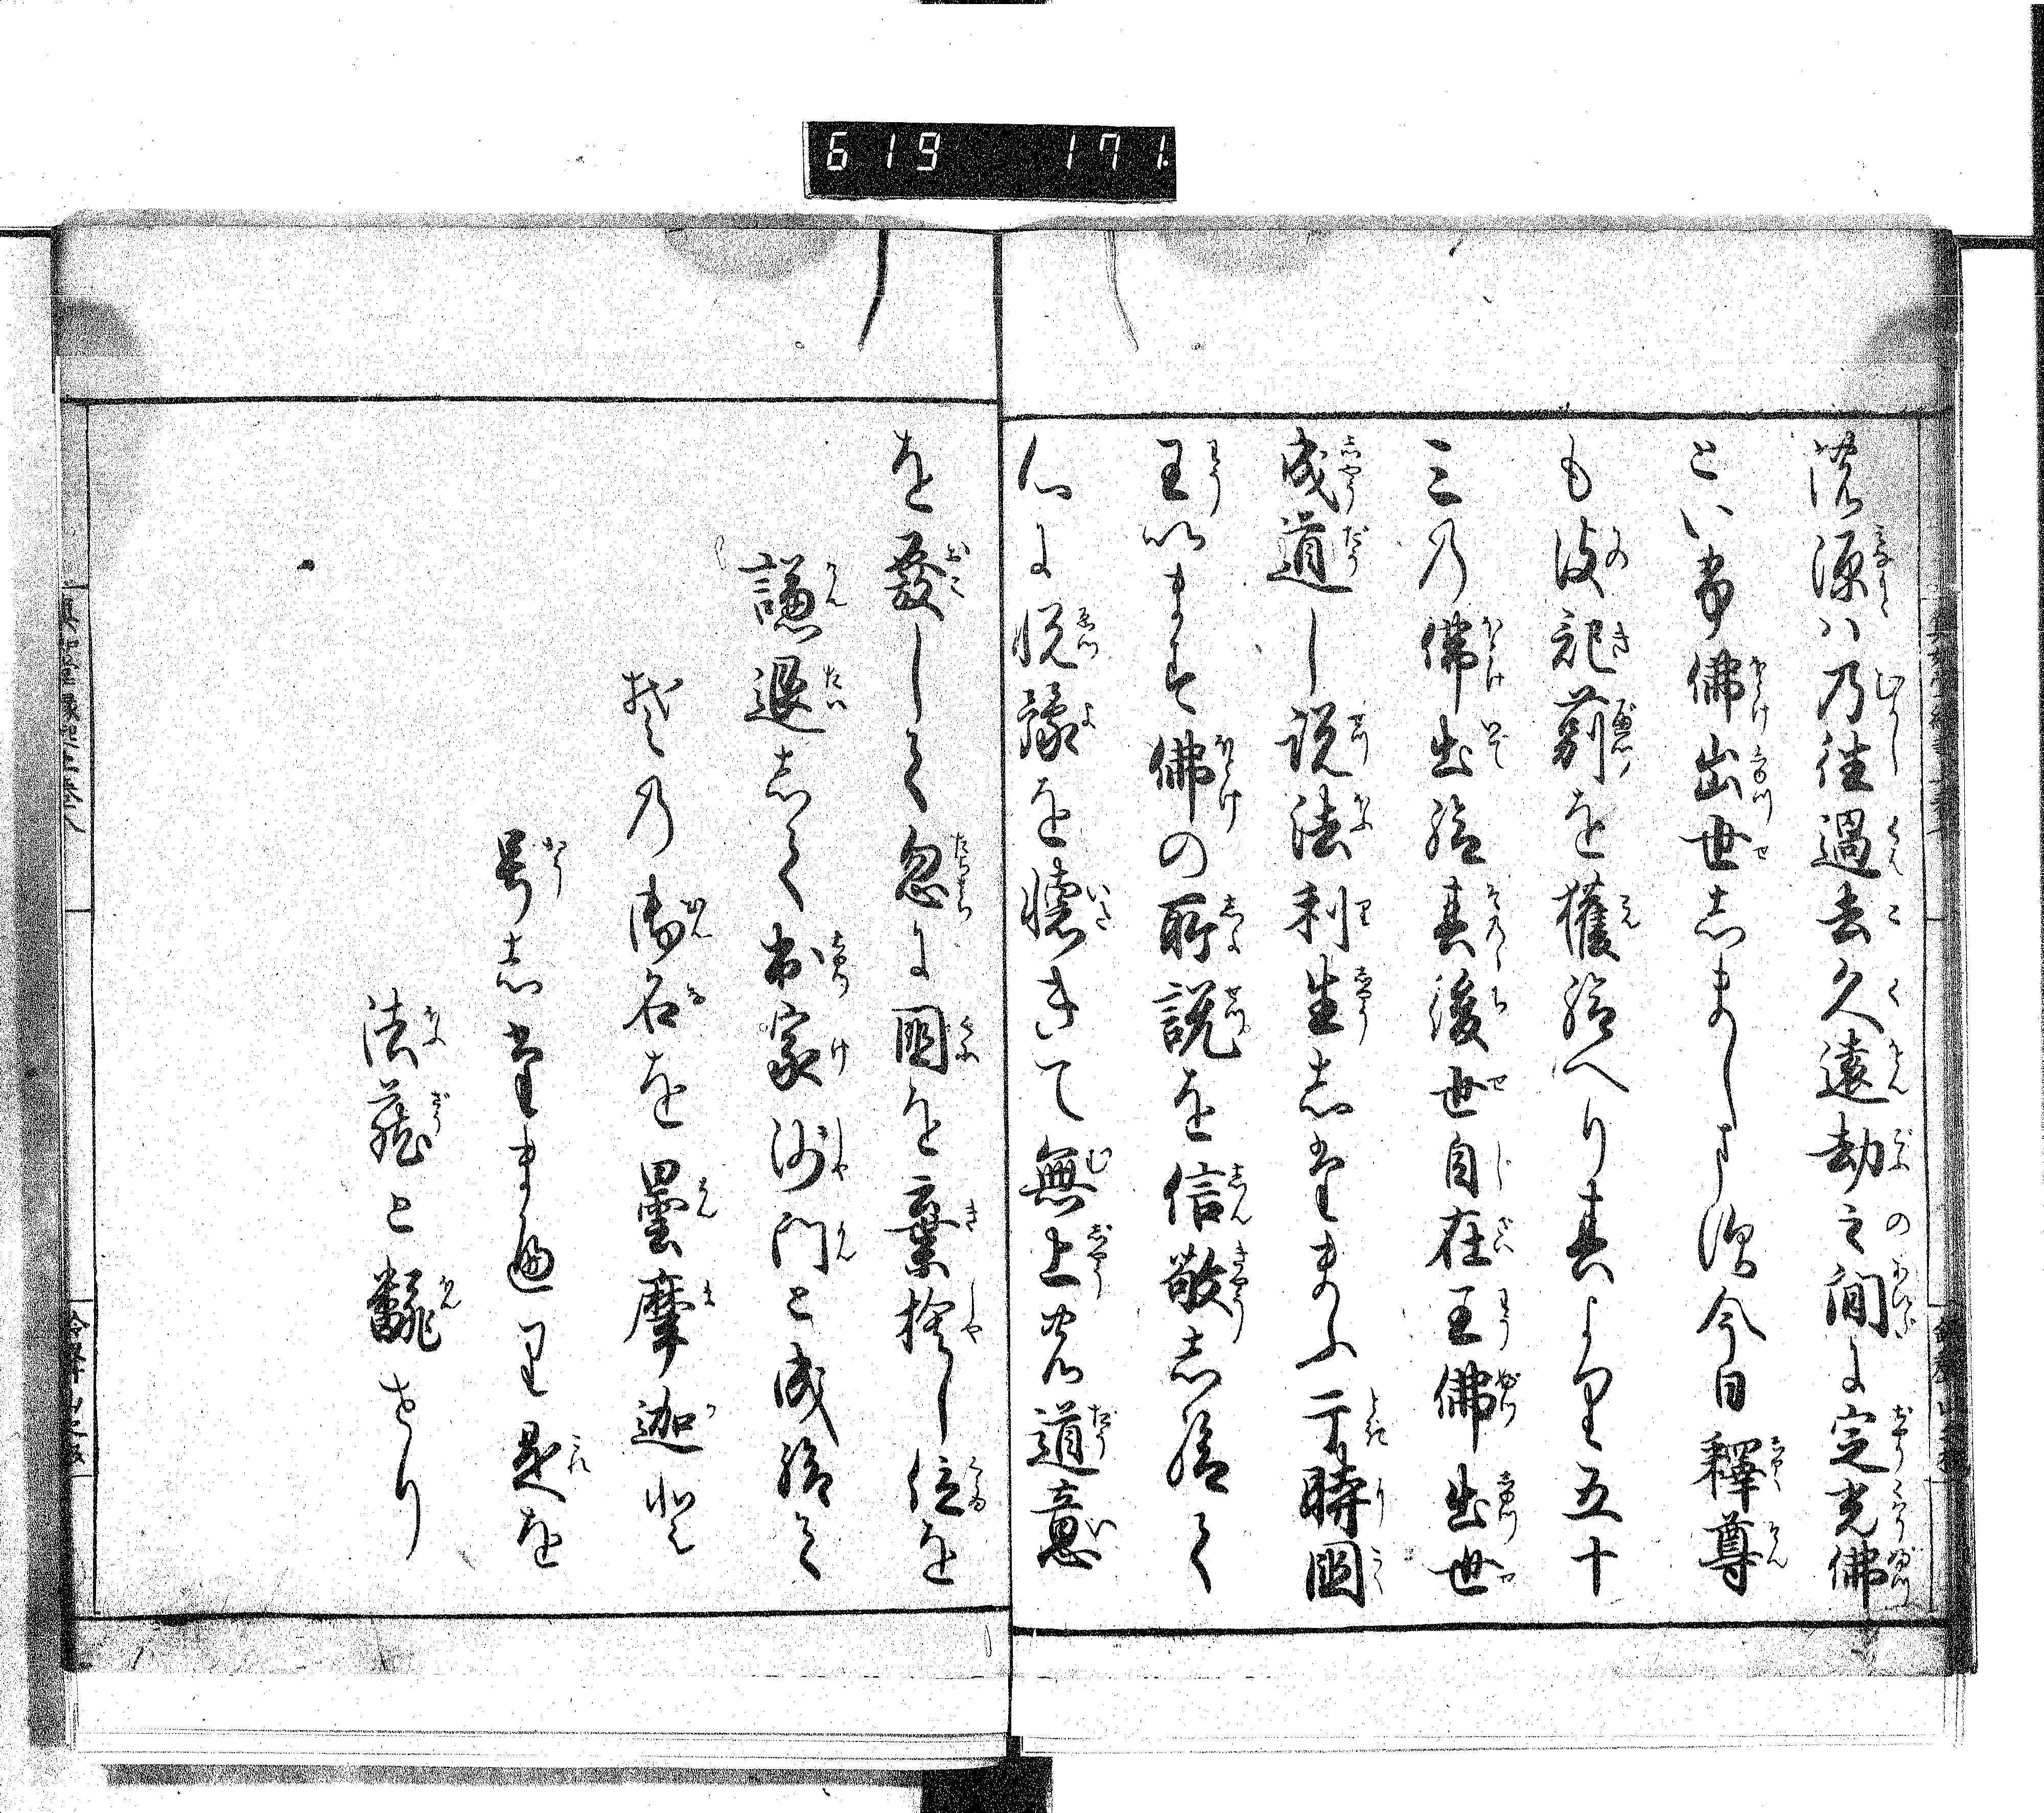 619 171
濫源ハ乃往過去久遠劫之間に定光佛
といふ佛出世しましまし給今日釋尊
も彼記莂を獲給へり其より五十
三の佛出給其後世自在王佛出世
成道し説法利生したまふ于時國
王いませり佛の所説を信敬し給て
心に悦豫を懐きて無上の道意
を發して忽に國を棄捨し位を
謙退して出家沙門と成給て
其の御名を曇摩迦と
号したまへり是を
法藏と飜せり